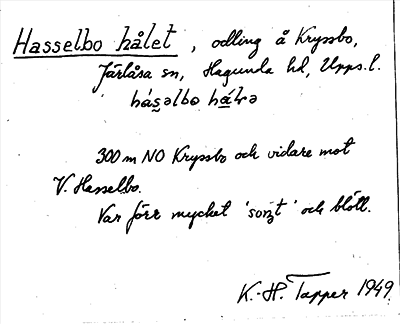 Hasselbo hålet, odling å Kryssbo,
Järlåsa sn, Hagunda hd, Upps. l.
hás̬əlbo hå̀lə
300 m NO Kryssbo och vidare mot
V. Hasselbo.
Var förr mycket 'sorgt' och blött.
K.-H. Tapper 1949.